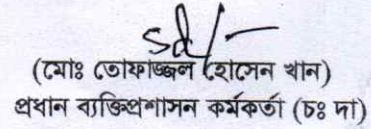 sd/-
(মোঃ তোফাজ্জল হোসেন খান)
প্রধান ব্যক্তিপ্রশাসন কর্মকর্তা (চঃ দাঃ)